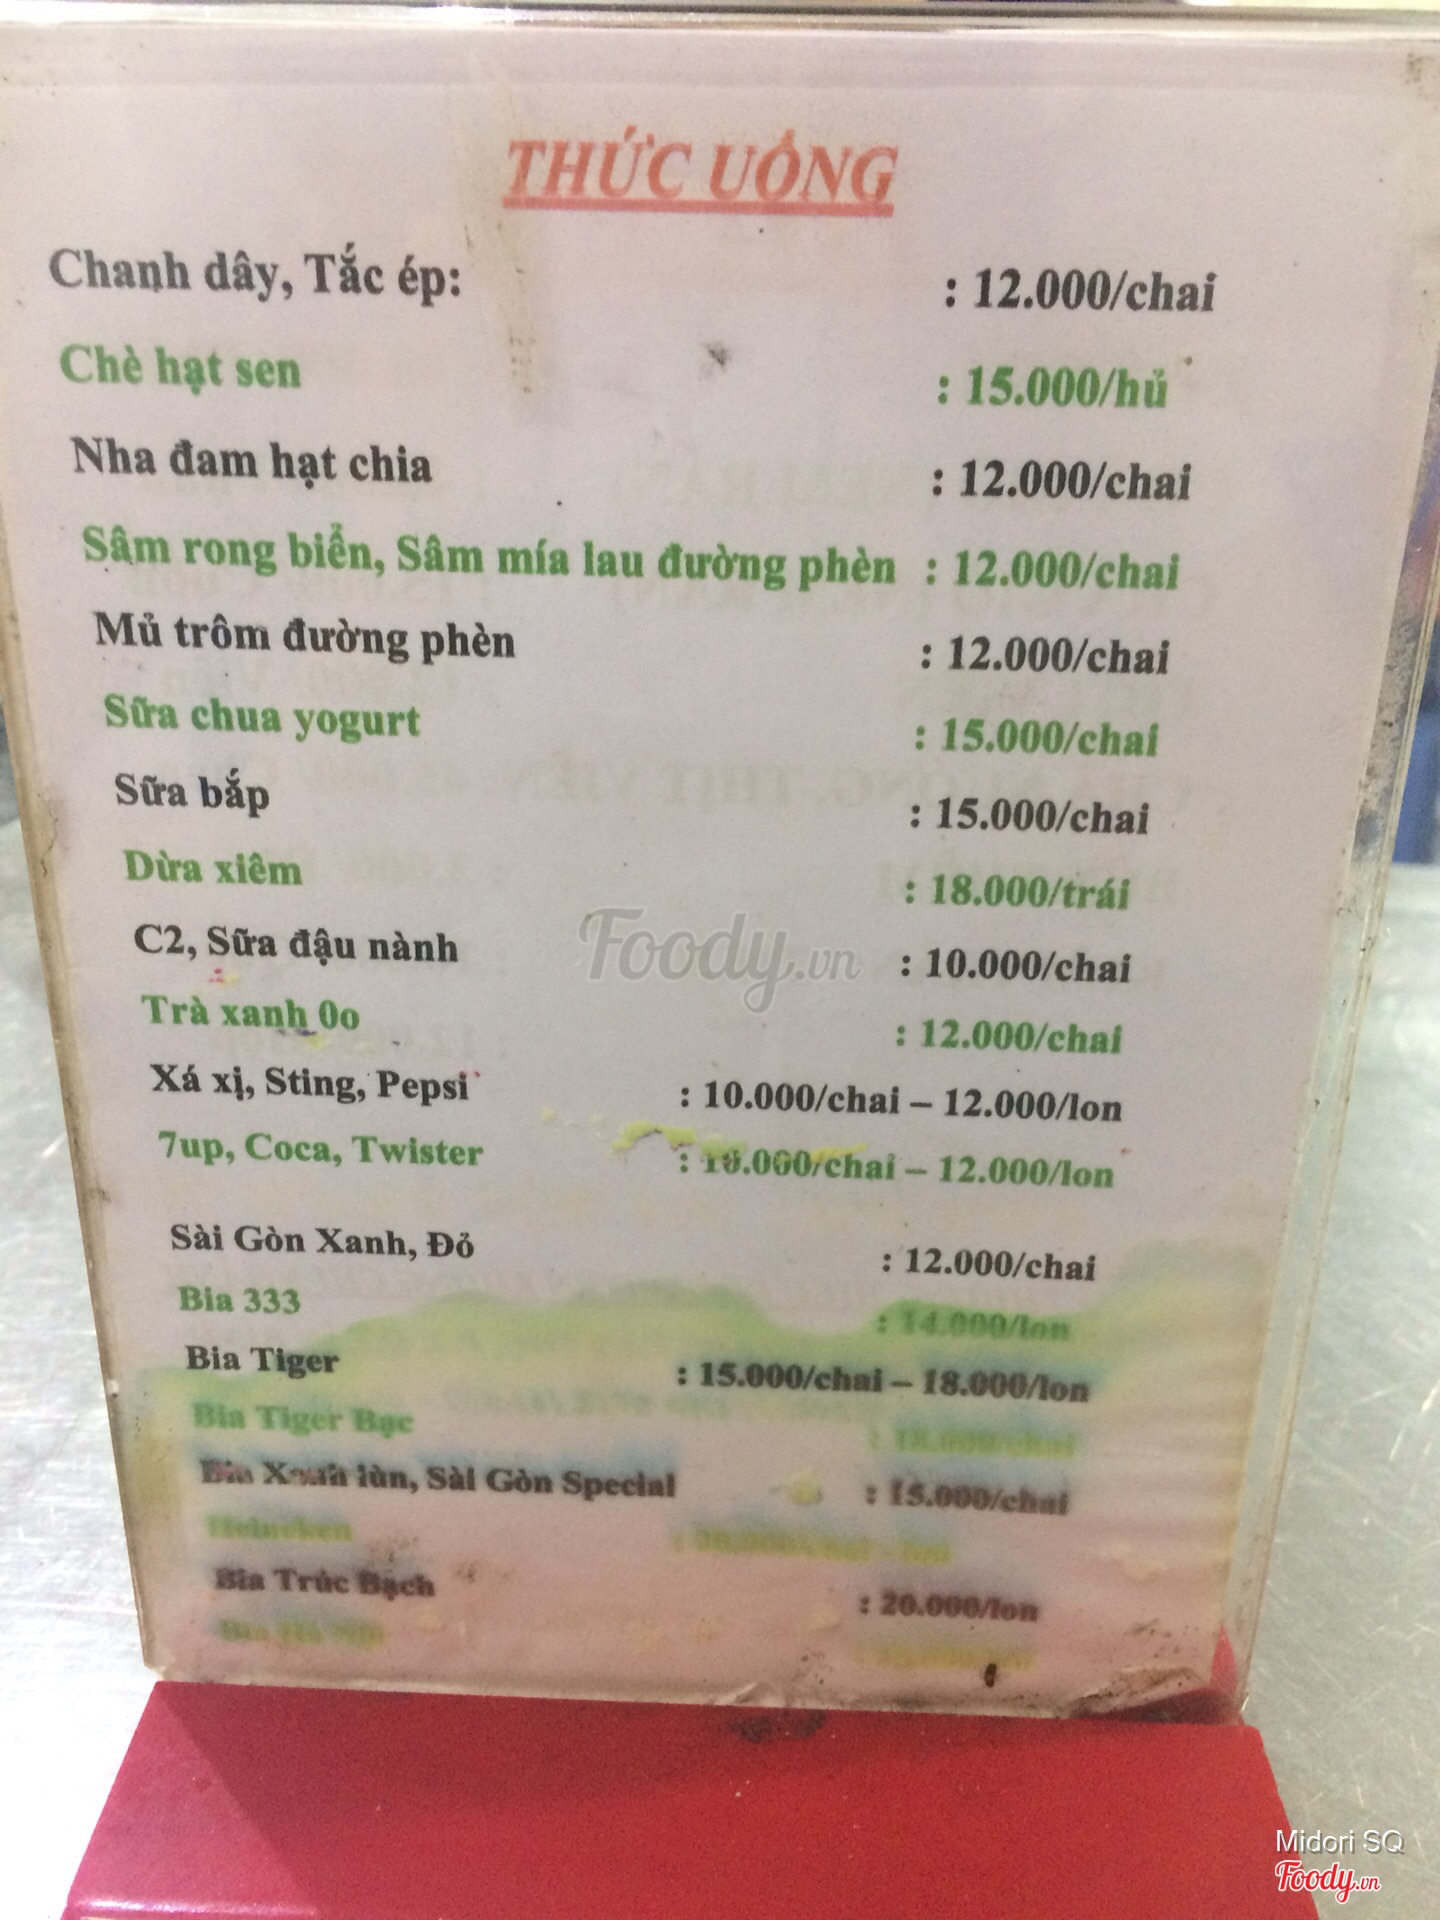 THỨC UỐNG
Chanh dây, Tắc ép: : 12.000/chai
Chè hạt sen : 15.000/hủ
Nha đam hạt chia : 12.000/chai
Sâm rong biển, Sâm mía lau đường phèn : 12.000/chai
Mủ trôm đường phèn : 12.000/chai
Sữa chua yogurt : 15.000/chai
Sữa bắp : 15.000/chai
Dừa xiêm : 18.000/trái
C2, Sữa đậu nành : 10.000/chai
Trà xanh 0o : 12.000/chai
Xá xị, Sting, Pepsi : 10.000/chai – 12.000/lon
7up, Coca, Twister : 10.000/chai – 12.000/lon
Sài Gòn Xanh, Đỏ : 12.000/chai
Bia 333 : 14.000/lon
Bia Tiger : 15.000/chai – 18.000/lon
Bia Tiger Bạc : 18.000/chai
Bia Xanh lùn, Sài Gòn Special : 15.000/chai
Heineken
Bia Trúc Bạch : 20.000/lon
Foody.vn
Midori SQ
Foody.vn